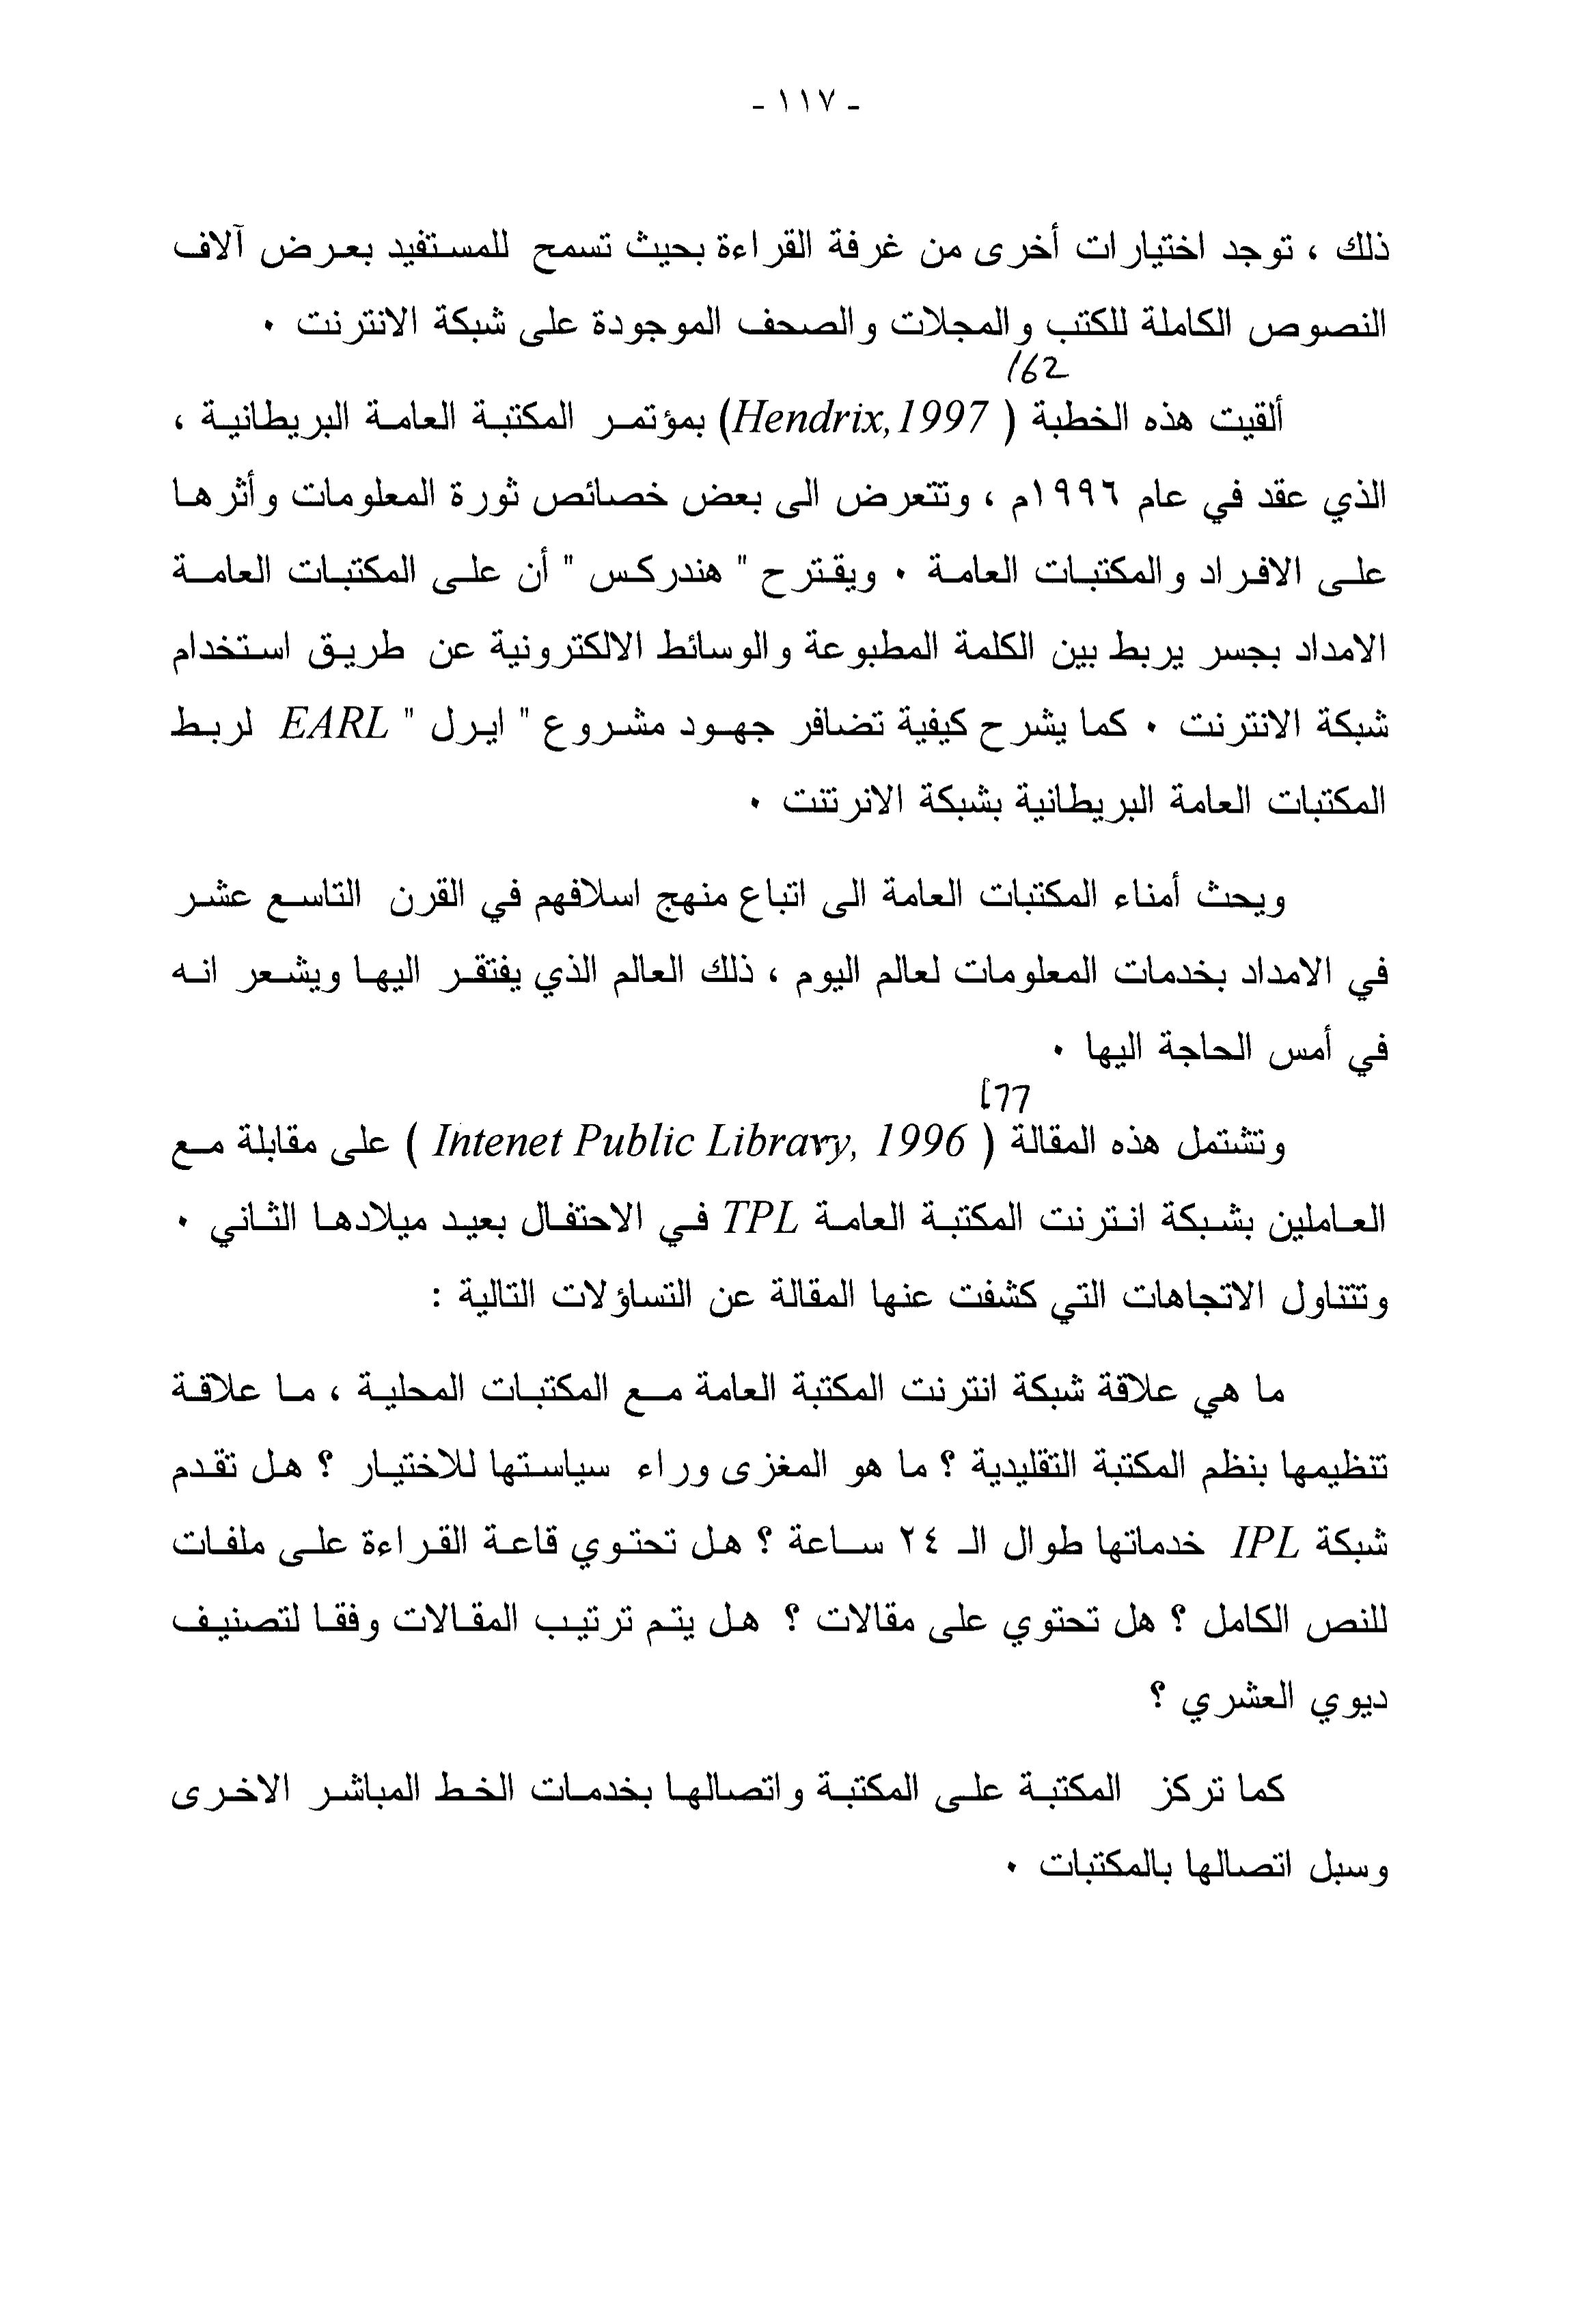 - ١١٧ -
ذلك ، توجد اختيارات أخرى من غرفة القراءة بحيث تسمح للمستفيد بعرض آلاف
النصوص الكاملة للكتب والمجلات والصحف الموجودة على شبكة الانترنت ٠
162
ألقيت هذه الخطبة ( Hendrix,1997) بمؤتمر المكتبة العامة البريطانية ،
الذي عقد في عام ١٩٩٦م ، وتتعرض الى بعض خصائص ثورة المعلومات وأثرها
على الافراد والمكتبات العامة ٠ ويقترح " هندركس " أن على المكتبات العامة
الامداد بجسر يربط بين الكلمة المطبوعة والوسائط الالكترونية عن طريق استخدام
شبكة الانترنت ٠ كما يشرح كيفية تضافر جهود مشروع " ايرل " EARL لربط
المكتبات العامة البريطانية بشبكة الانرتنت ٠
ويحث أمناء المكتبات العامة الى اتباع منهج اسلافهم في القرن التاسع عشر
في الامداد بخدمات المعلومات لعالم اليوم ، ذلك العالم الذي يفتقر اليها ويشعر انه
في أمس الحاجة اليها ٠
177
وتشتمل هذه المقالة ( Intenet Public Library, 1996 ) على مقابلة مع
العاملين بشبكة انترنت المكتبة العامة TPL في الاحتفال بعيد ميلادها الثاني ٠
وتتناول الاتجاهات التي كشفت عنها المقالة عن التساؤلات التالية :
ما هي علاقة شبكة انترنت المكتبة العامة مع المكتبات المحلية ، ما علاقة
تنظيمها بنظم المكتبة التقليدية ؟ ما هو المغزى وراء سياستها للاختيار ؟ هل تقدم
شبكة IPL خدماتها طوال الـ ٢٤ ساعة ؟ هل تحتوي قاعة القراءة على ملفات
للنص الكامل ؟ هل تحتوي على مقالات ؟ هل يتم ترتيب المقالات وفقا لتصنيف
ديوي العشري ؟
كما تركز المكتبة على المكتبة واتصالها بخدمات الخط المباشر الاخرى
وسبل اتصالها بالمكتبات ٠